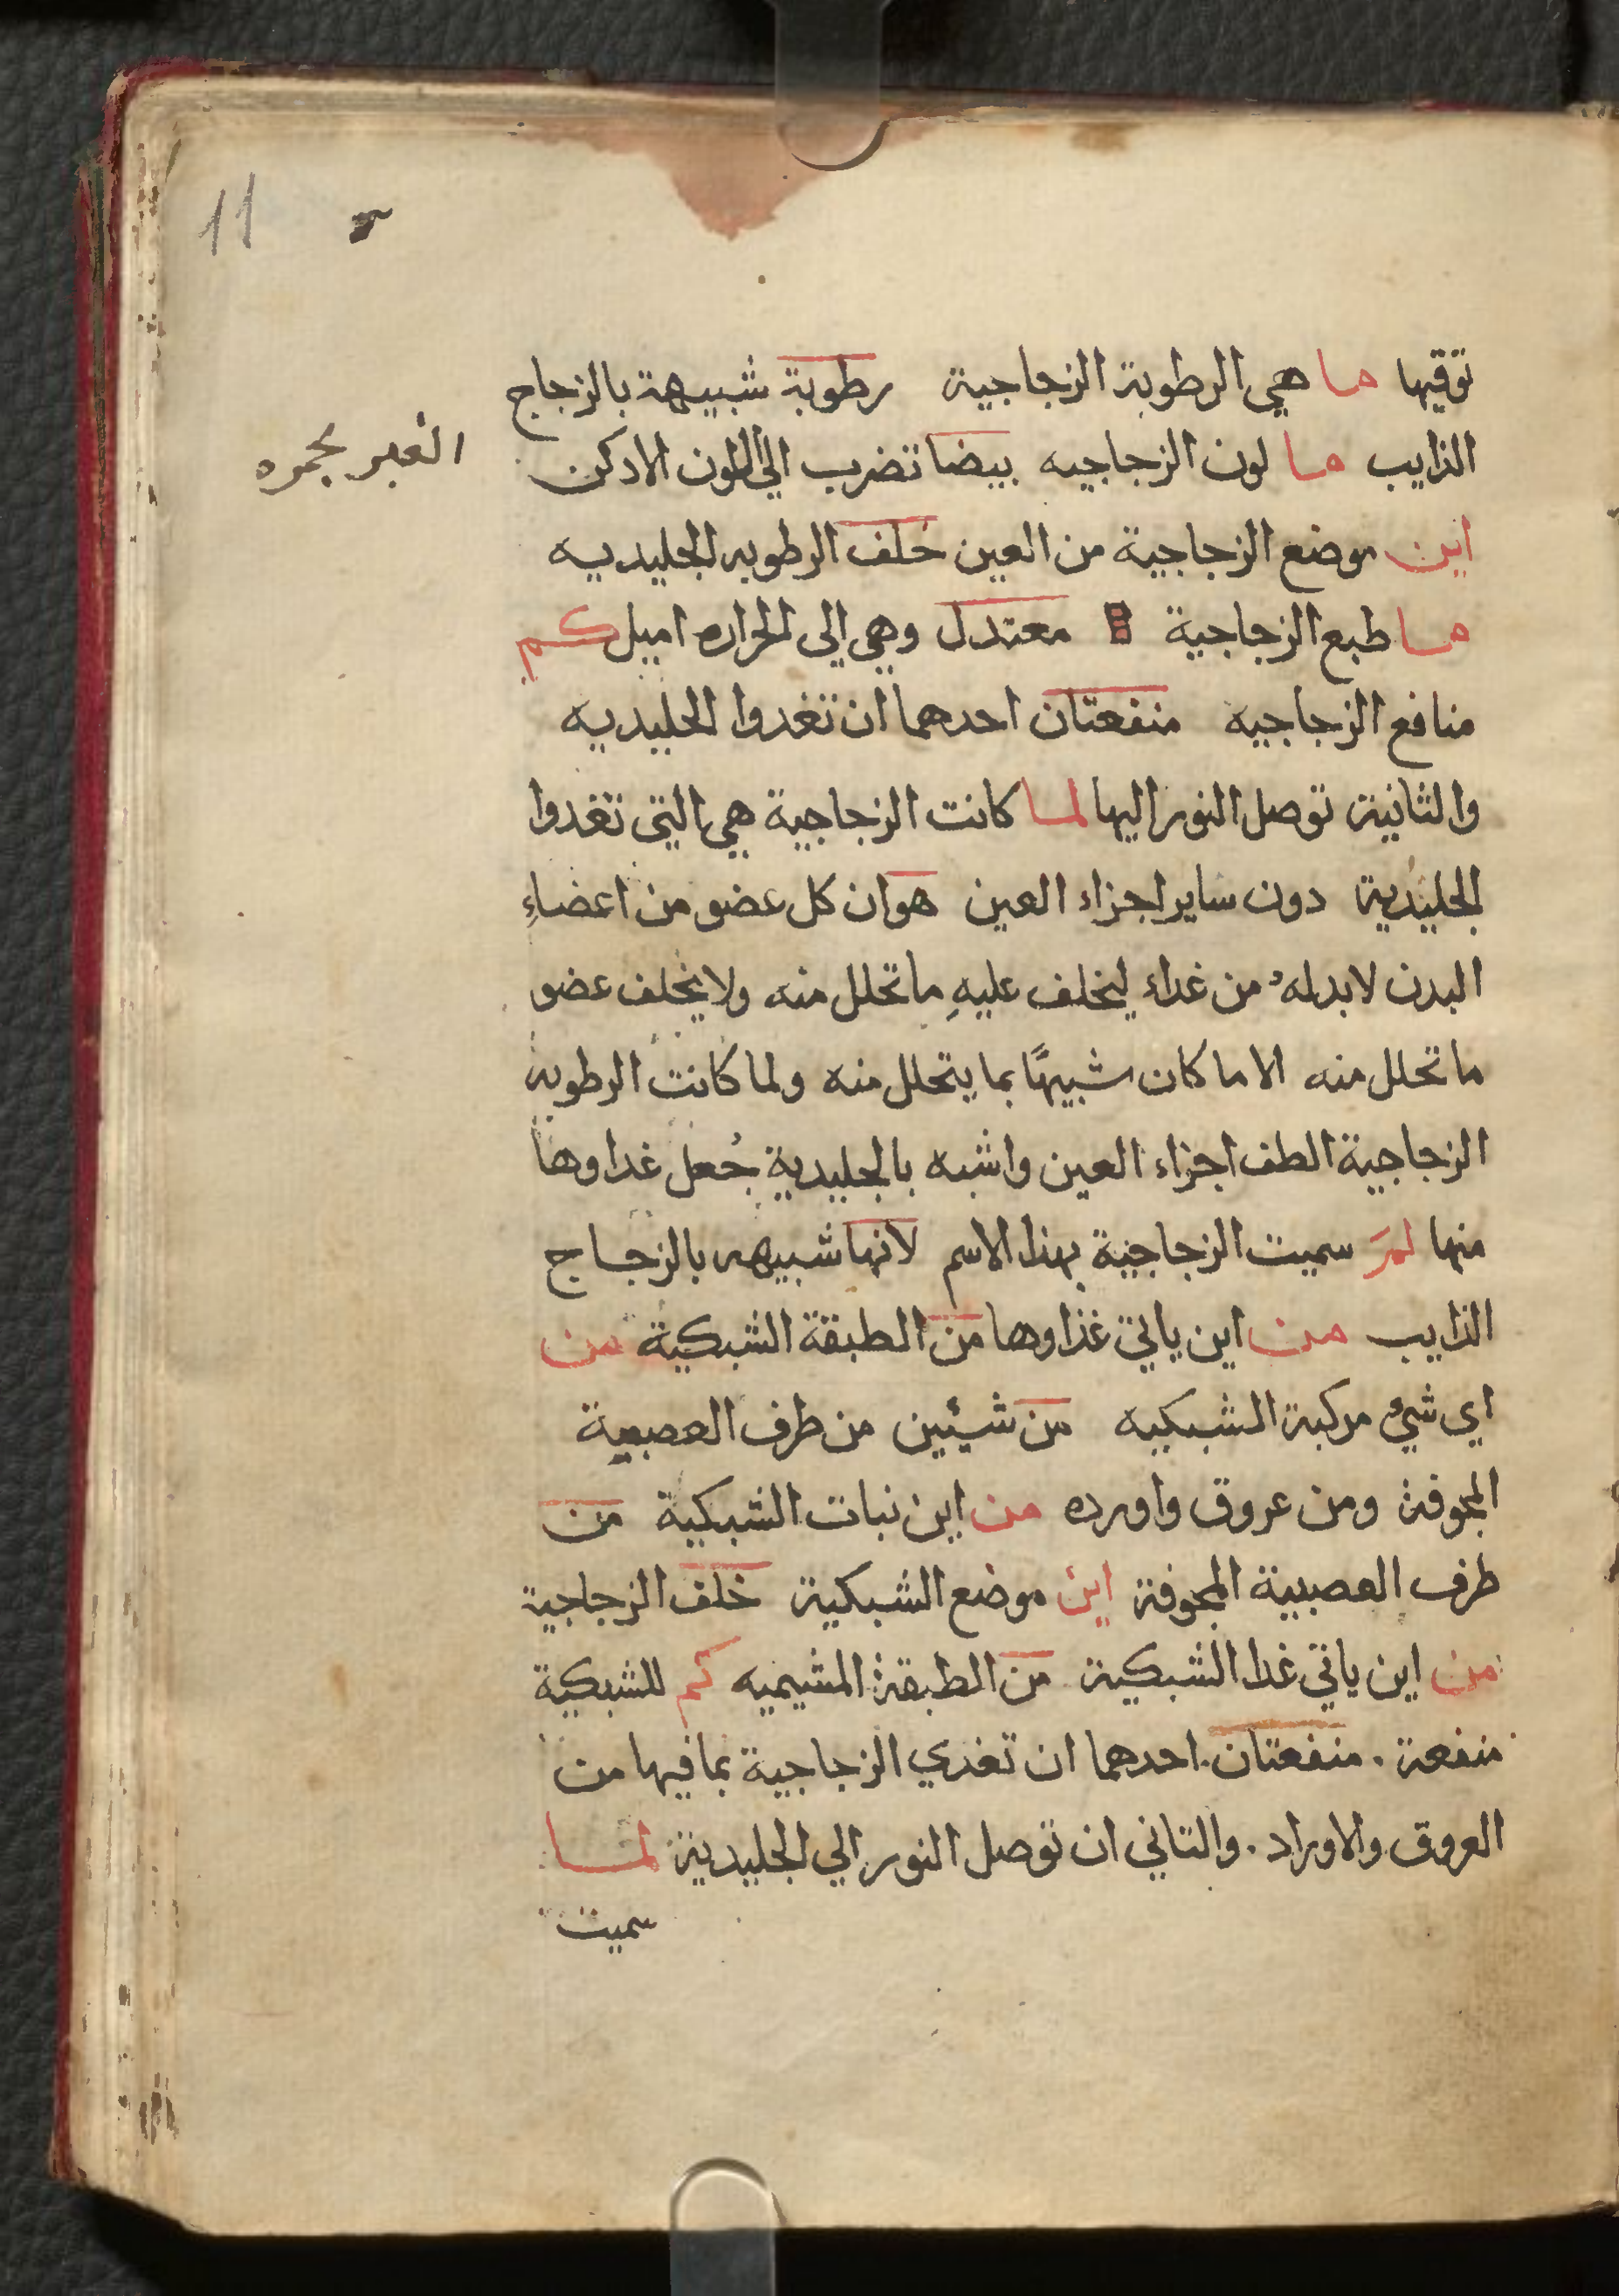 11
توقيها ما هي الرطوبة الزجاجية رطوبة شبيهة بالزجاج
الذايب ما لون الزجاجيه بيضا تضرب الي اللون الادكن
بحمره
اين موضع الزجاجية من العين خلف الرطوبه الجليديه
ما طبع الزجاجية معتدل وهي الى الحراره اميل كم
منافع الزجاجيه منفعتان احدهما ان تغدوا الجليديه
والثانية توصل النور اليها لما كانت الزجاجية هي التي تغدوا
الجليدية دون ساير اجزاء العين هو ان كل عضو من اعضاء
البدن لا بد له من غداء ليخلف عليهِ ما تحلل منه ولا يخلف عضو
ما تحلل منه الا ما كان شبيهًا بما يتحلل منه ولما كانت الرطوبة
الزجاجية الطف اجزاء العين واشبه بالجليدية جُعل غداوها
منها لمَ سميت الزجاجية بهذا الاسم لانها شبيهه بالزجاج
الذايب من اين ياتي غذاوها من الطبقة الشبكية من
اي شيء مركبة الشبكيه من شيئين من طرف العصبية
المجوفة ومن عروق واورده من اين نبات الشبكية من
طرف العصبية المجوفة اين موضع الشبكية خلف الزجاجية
من اين ياتي غدا الشبكية من الطبقة المشيميه كم للشبكية
منفعة . منفعتان . احدهما ان تغدي الزجاجية بما فيها من
العروق والاوراد . والتاني ان توصل النور الي الجليدية لما
سميت